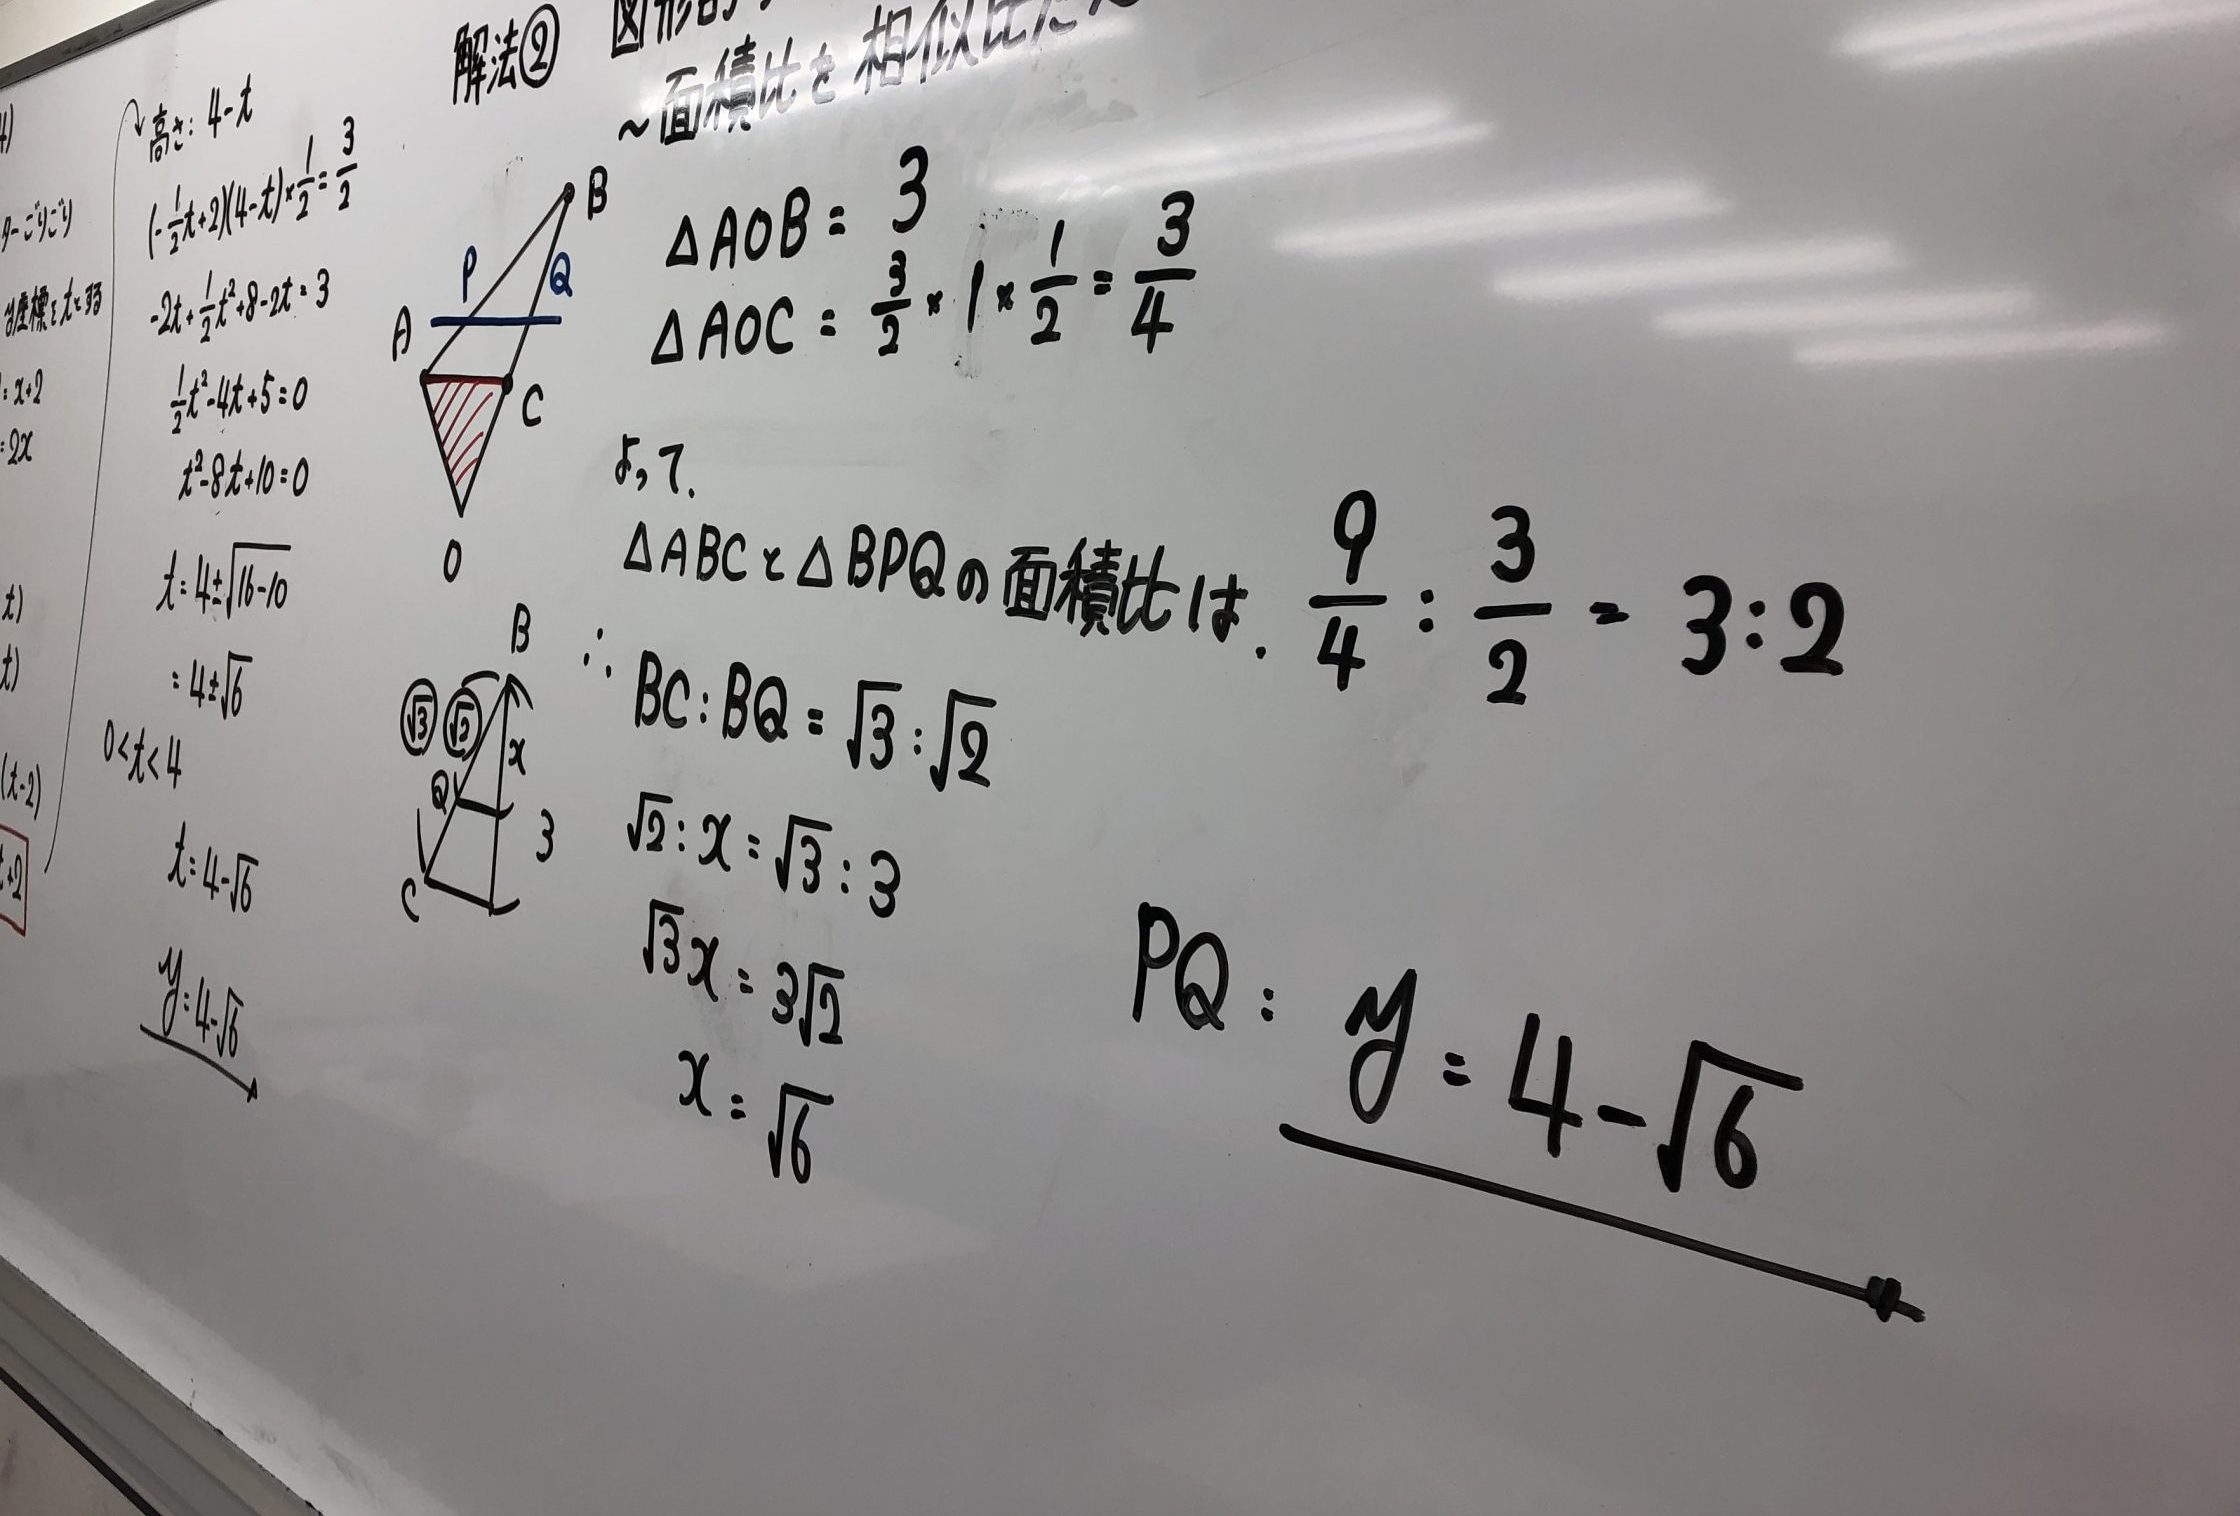 4)
ターごりごり
y座標をtとする
= x+2
= 2x
t)
t)
(t-2)
t+2
高さ: 4-t
(-1/2t+2)(4-t)×1/2=3/2
-2t+1/2t²+8-2t=3
1/2t²-4t+5=0
t²-8t+10=0
t=4±√16-10
=4±√6
0<t<4
t=4-√6
y=4-√6
解法②
~面積比を相似比
B
P
Q
A
C
O
△AOB = 3
△AOC = 3/2 × 1 × 1/2 = 3/4
よって.
△ABCと△BPQの面積比は. 9/4 : 3/2 = 3:2
B
√3 √2
x
Q
3
C
∴ BC:BQ = √3:√2
√2:x=√3:3
√3x=3√2
x=√6
PQ: y=4-√6